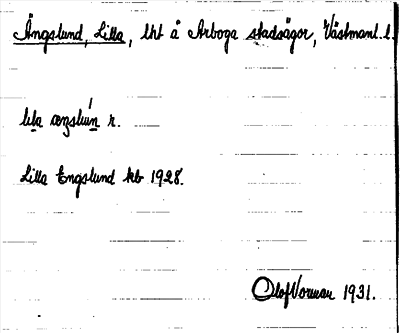 Ängslund, Lilla, lht å Arboga stadsägor, Västmanl. l.
lila r.
Lilla Engslund kb 1928.
Olof Norman 1931.